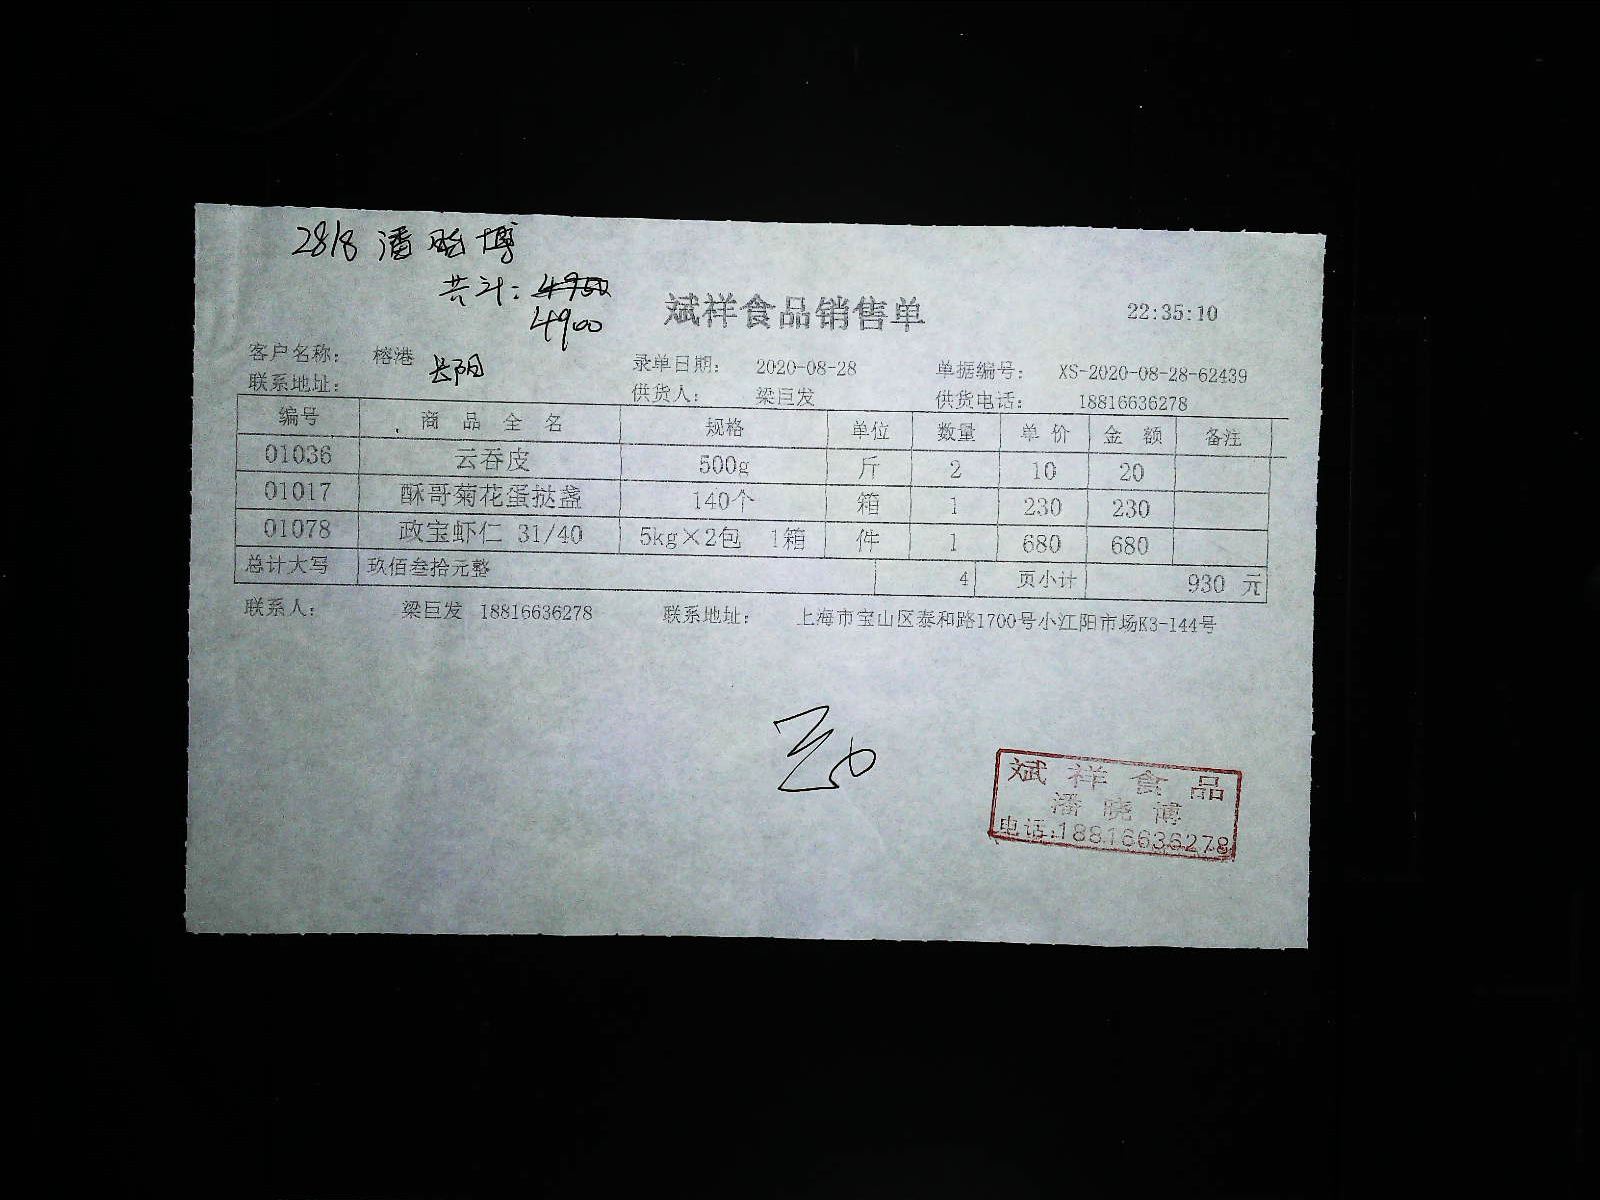 28/8 潘晓博
共计：4950
4900
斌祥食品销售单 22:35:10
客户名称： 榕港 长阳 录单日期： 2020-08-28 单据编号： XS-2020-08-28-62439
联系地址： 供货人： 梁巨发 供货电话： 18816636278
编号 商品全名 规格 单位 数量 单价 金额 备注
01036 云吞皮 500g 斤 2 10 20
01017 酥哥菊花蛋挞盏 140个 箱 1 230 230
01078 政宝虾仁 31/40 5kg×2包 1箱 件 1 680 680
总计大写 玖佰叁拾元整 4 页小计 930 元
联系人： 梁巨发 18816636278 联系地址： 上海市宝山区泰和路1700号小江阳市场K3-144号
斌祥食品
潘晓博
电话:18816636278